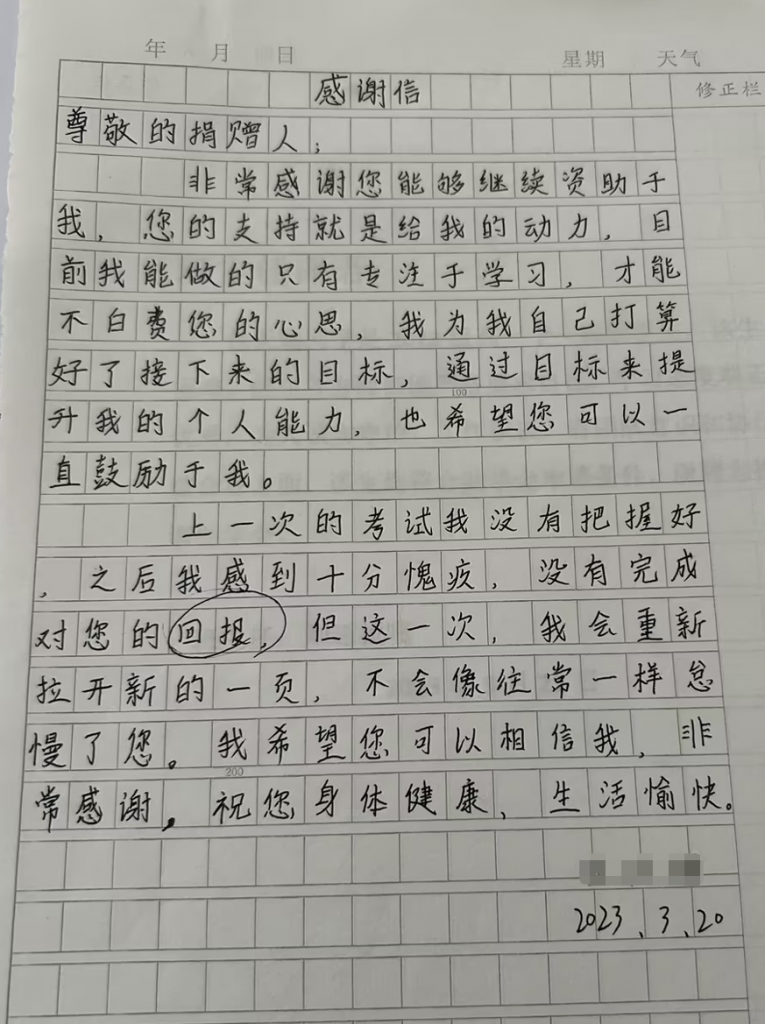 年 月 日 星期 天气
修正栏
感谢信
尊敬的捐赠人：
非常感谢您能够继续资助于
我，您的支持就是给我的动力，目
前我能做的只有专注于学习，才能
不白费您的心思，我为我自己打算
好了接下来的目标，通过目标来提
100
升我的个人能力，也希望您可以一
直鼓励于我。
上一次的考试我没有把握好
，之后我感到十分愧疚，没有完成
对您的回报，但这一次，我会重新
拉开新的一页，不会像往常一样怠
慢了您。我希望您可以相信我，非
200
常感谢，祝您身体健康、生活愉快。
2023.3.20